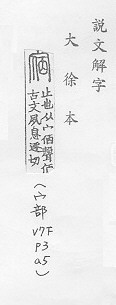 說文解字
大徐本
宿
止也从宀㐁聲㐁
古文夙息逐切
(宀部
V7下
P3
a5)